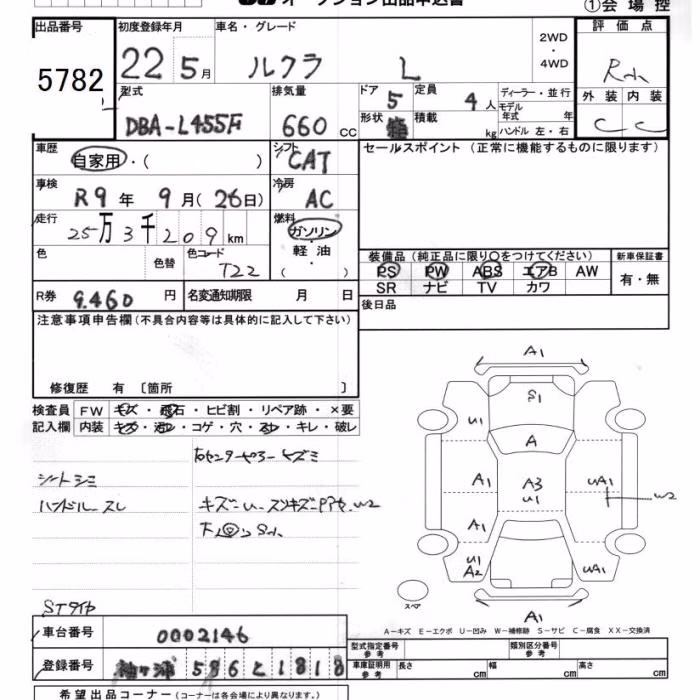 オークション出品申込書
①会場控
出品番号 初度登録年月 車名・グレード 評価点
5782 22 5月 ルクラ L 2WD・4WD
型式 排気量 ドア 定員 ディーラー・並行 外装 内装
DBA-L455F 660 CC 5 4人 モデル年式 年 C C
形状 箱 積載 kg ハンドル 左・右
車歴 シフト セールスポイント(正常に機能するものに限ります)
自家用・( ) CAT
車検 冷房
R9年 9月(26日) AC
走行 燃料
25万3千209km ガソリン・軽油( )
色 色替 色コード 装備品(純正品に限り○をつけてください) 新車保証書
T22 PS PW ABS エアB AW 有・無
SR ナビ TV カワ
R券 9.460円 名変通知期限 月 日 後日品
注意事項申告欄(不具合内容等は具体的に記入して下さい)
修復歴 有 [箇所 ]
検査員 FW キズ・飛石・ヒビ割・リペア跡・×要
記入欄 内装 キズ・汚レ・コゲ・穴・スレ・キレ・破レ
シートシミ
ハンドルスレ
STタイヤ
A1
S1
U1
A
A1 A3 U1 UA1 W2
A1
U1 A2 UA1
スペア
A1
A-キズ E-エクボ U-凹み W-補修跡 S-サビ C-腐食 XX-交換済
車台番号 0002146
型式指定番号 参考 類別区分番号 参考
登録番号 袖ヶ浦 586 と 1818
車庫証明用 参考 長さ cm 幅 cm 高さ cm
希望出品コーナー(コーナーは各会場により異なります。)